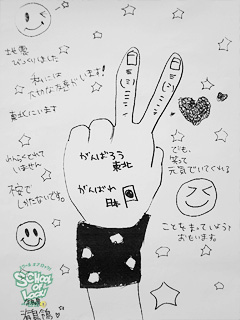 地震
びっくりしました
私には
大切な友達がいます!
東北にいます
れんらくとれて
いません
不安で
しかたないです。
がんばろう
東北
がんばれ
日本
でも、
笑って
元気でいてくれる
ことをまっていようと
おもいます。
SCHOOL OF LOCK!